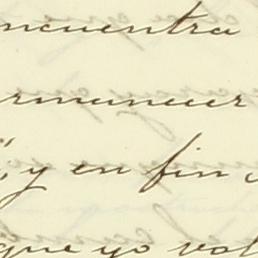 ncuentra
rmanecer
, y en fin
que yo vol